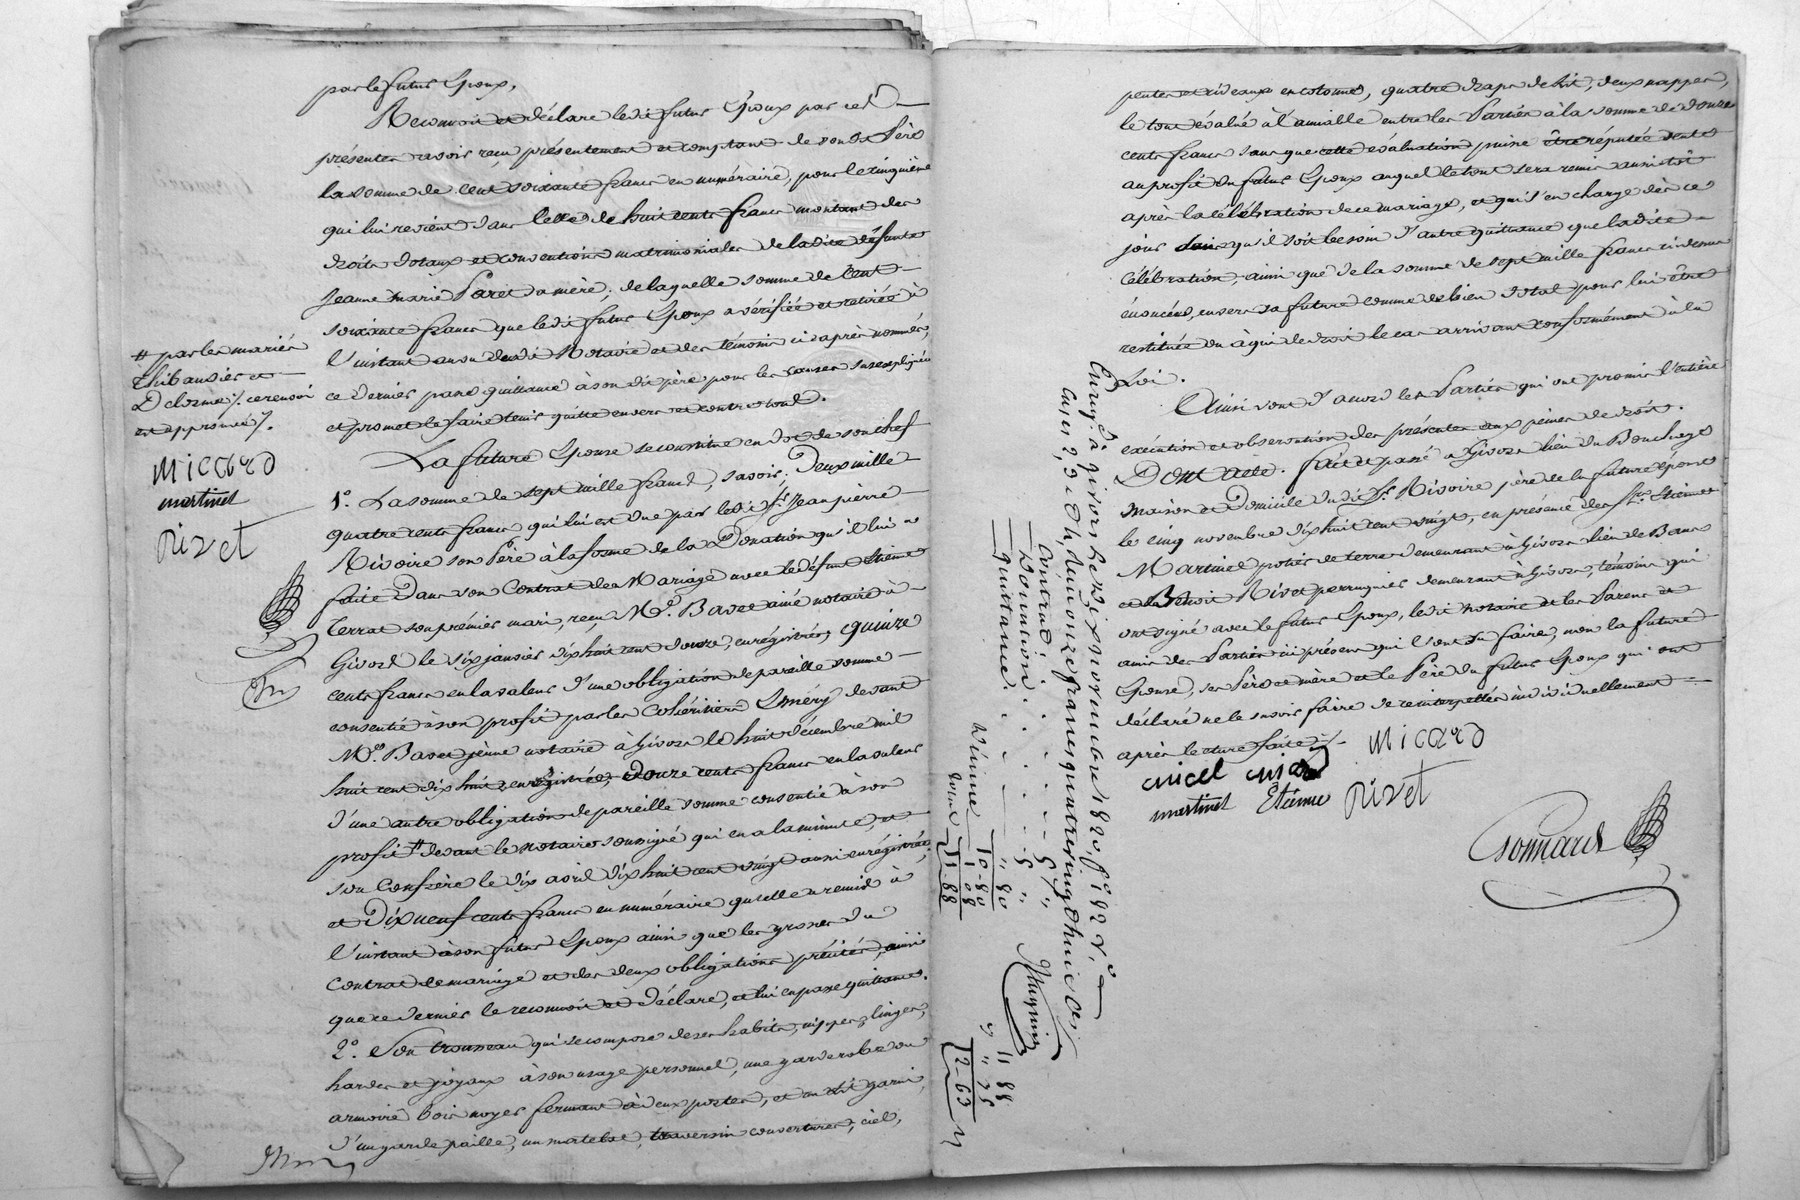 par le futur Epoux,
Reconnoit et déclare ledit futur Epoux par ces
présentes avoir reçu présentement et comptant de sondt Père
la somme de cent soixante francs en numéraire, pour le cinquième
qui lui revient dans celle de huit cents francs montant des
droits dotaux et conventions matrimoniales de ladite défunte
Jeanne Marie Paret sa mère; de laquelle somme de cent
soixante francs que ledit futur Epoux a vérifiée et retirée à
l'instant au vu dudit Notaire et des témoins ci après nommés,
ce dernier passe quittance à son dit père pour les causes susexpliquées
et promet le faire tenir quitte envers et contre tous.
La future Epouse se constitue en dot de son chef
1.° La somme de sept mille francs, savoir: Deux mille
quatre cents francs qui lui est due par ledit Sr. Jean pierre
Rivoire son Père à la forme de la Donation qu'il lui a
faite Dans son Contrat de Mariage avec le défunt Etienne
Terrat son premier mari, reçu Me. Bavet ainé notaire à
Givors le six janvier dix huit cent douze, enregistré; quinze
cents francs en la valeur d'une obligation de pareille somme
consentie à son profit par les Cohéritiers Eméry devant
Me. Bavet jeune notaire à Givors le huit décembre mil
huit cent dix huit, enregistrée; douze cents francs en la valeur
d'une autre obligation de pareille somme consentie à son
profit # devant le notaire soussigné qui en a la minute, et
son Confrère le dix avril dix huit cent vingt aussi enregistrée;
et Dix neuf cents francs en numéraire qu'elle a remis à
l'instant à son futur Epoux ainsi que les grosses du
contrat de mariage et des deux obligations précitées, ainsi
que ce dernier le reconnoit et déclare, et lui en passe quittance.
2.° Son trousseau qui se compose de ses habits, nippes, linges,
hardes et joyaux à son usage personnel, une garderobe ou
armoire bois noyer fermant à deux portes, et un lit garni
d'un garde paille, un matelas, traversin couvertures, ciel,
# par les mariés
Thibaudier et
Delorme /. ce renvoi
est approuvé /.
micard
martinet
Rivet
pentes et rideaux en cotonne, quatre draps de lit, deux nappes,
le tout évalué à l'amiable entre les Parties à la somme de douze
cents francs sans que cette évaluation puisse être réputée vente
au profit du futur Epoux auquel le tout sera remis aussitôt
après la célébration de ce mariage, et qui s'en charge dès ce
jour sans qu'il soit besoin d'autre quittance que ladite
célébration, ainsi que de la somme de sept mille francs ci dessus
énoncée, envers sa future comme de bien dotal pour lui être
restituée ou à qui de droit le cas arrivant conformément à la
Loi.
Ainsi sont d'accord les Parties qui ont promis l'entière
exécution et observation des présentes aux peines de droit.
Dont acte. fait et passé à Givors lieu du Bouchage
maison et Domicile dudit Sr. Rivoire père de la future épouse
le cinq novembre dix huit cent vingt, en présence des Srs. Etienne
Martinet potier de terre demeurant à Givors lieu de Bans
et Benoit Rivet perruquier demeurant à Givors, témoins qui
ont signé avec le futur Epoux, ledit notaire et les Parens et
amis des Parties ici présens qui l'ont su faire, non la future
Epouse, ses Père et mère et le Père du futur Epoux qui ont
déclaré ne le savoir faire de ce interpellés individuellement
après lecture faite /.
micard
martinet Etienne Rivet
Sonnard
Enregé à givors le dix novembre 1820, fo. 192 Vo.
Cases 2, 3 et 4, dû onze francs quatre vingt huit ces
Contrat
Donnation
quittance
10-80
Dixime 1 08
11-88
11 88
" 75
12-63